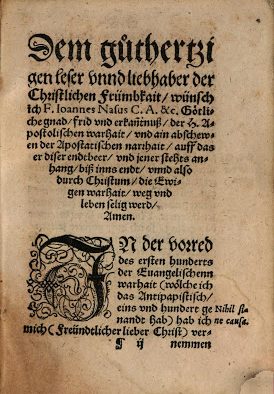 Dem gůthertzi
gen leser vnnd liebhaber der
Christlichen Frümbkait/ wünsch
ich F. Ioannes Nasus C. A. &c. Götli-
che gnad/ frid vnd erkañtnuß/ der H. A-
postolischen warhait/ vnd ain abschew-
en der Apostatischen narrhait/ auff das
er diser endtbeer/ vnd jener stehts an-
hang/ biß inns endt/ vnnd also
durch Christum/ die Ewi-
gen warhait/ weg vnd
leben selig werd/
Amen.
IN der vorred
des ersten hunderts
der Euangelischenn
warhait (wölche ich
das Antipapistisch/
eins vnd hundert ge Nihil si-
nandt hab) hab ich ne causa.
mich (Freündtlicher lieber Christ) ver-
¶ ij nemmen